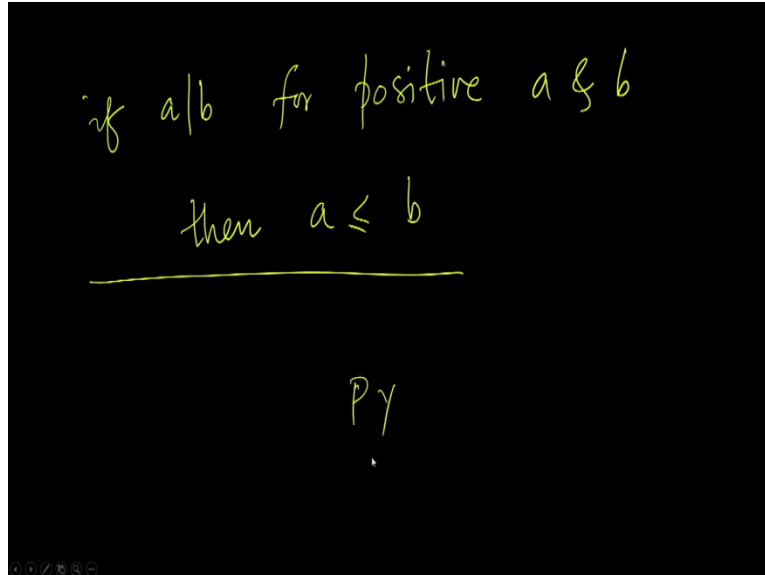 if a|b for positive a & b
then a ≤ b
PY